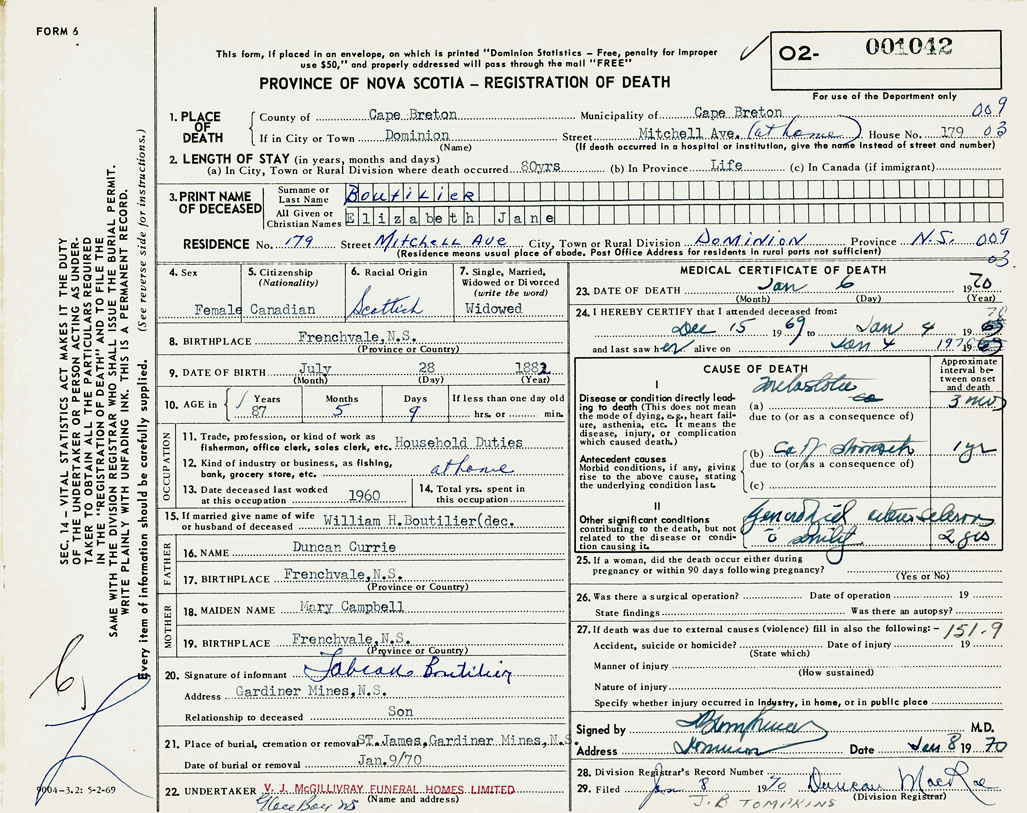 FORM 6
This form, if placed in an envelope, on which is printed "Dominion Statistics – Free, penalty for improper
use $50," and properly addressed will pass through the mail "FREE"
PROVINCE OF NOVA SCOTIA – REGISTRATION OF DEATH
02- 001042
For use of the Department only
009
03
1. PLACE OF DEATH
County of Cape Breton Municipality of Cape Breton
If in City or Town Dominion Street Mitchell Ave. (at home) House No. 179
(Name) (If death occurred in a hospital or institution, give the name instead of street and number)
2. LENGTH OF STAY (in years, months and days)
(a) In City, Town or Rural Division where death occurred 80yrs (b) In Province Life (c) In Canada (if immigrant)
3. PRINT NAME OF DECEASED
Surname or Last Name Boutilier
All Given or Christian Names Elizabeth Jane
RESIDENCE No. 179 Street Mitchell Ave City, Town or Rural Division Dominion Province N.S. 009
(Residence means usual place of abode. Post Office Address for residents in rural parts not sufficient) 03.
4. Sex Female
5. Citizenship (Nationality) Canadian
6. Racial Origin Scottish
7. Single, Married, Widowed or Divorced (write the word) Widowed
8. BIRTHPLACE Frenchvale, N.S.
(Province or Country)
9. DATE OF BIRTH July 28 1882
(Month) (Day) (Year)
10. AGE in Years 87 Months 5 Days 9 If less than one day old hrs. or min.
OCCUPATION
11. Trade, profession, or kind of work as
fisherman, office clerk, sales clerk, etc. Household Duties
12. Kind of industry or business, as fishing,
bank, grocery store, etc. at home
13. Date deceased last worked
at this occupation 1960
14. Total yrs. spent in
this occupation
15. If married give name of wife
or husband of deceased William H.Boutilier(dec.
FATHER
16. NAME Duncan Currie
17. BIRTHPLACE Frenchvale,N.S.
(Province or Country)
MOTHER
18. MAIDEN NAME Mary Campbell
19. BIRTHPLACE Frenchvale,N.S.
(Province or Country)
20. Signature of informant Boutilier
Address Gardiner Mines,N.S.
Relationship to deceased Son
21. Place of burial, cremation or removal ST.James,Gardiner Mines,N.S.
Date of burial or removal Jan.9/70
22. UNDERTAKER V. J. McGILLIVRAY FUNERAL HOMES LIMITED
Glace Bay NS (Name and address)
MEDICAL CERTIFICATE OF DEATH
23. DATE OF DEATH Jan 6 1970
(Month) (Day) (Year)
24. I HEREBY CERTIFY that I attended deceased from:
Dec 15 1969 to Jan 4 19 70
and last saw her alive on Jan 4 1970
CAUSE OF DEATH
Approximate interval between onset and death
I
Disease or condition directly leading to death (This does not mean the mode of dying, e.g., heart failure, asthenia, etc. It means the disease, injury, or complication which caused death.)
(a) 3 mos
due to (or as a consequence of)
Antecedent causes
Morbid conditions, if any, giving rise to the above cause, stating the underlying condition last.
(b) Ca of stomach 1 yr
due to (or as a consequence of)
(c)
II
Other significant conditions contributing to the death, but not related to the disease or condition causing it.
Generalized
senility 2 yrs
25. If a woman, did the death occur either during
pregnancy or within 90 days following pregnancy?
(Yes or No)
26. Was there a surgical operation? Date of operation 19
State findings Was there an autopsy?
27. If death was due to external causes (violence) fill in also the following: – 151.9
Accident, suicide or homicide? Date of injury 19
(State which)
Manner of injury
(How sustained)
Nature of injury
Specify whether injury occurred in Industry, in home, or in public place
Signed by M.D.
Address Dominion Date Jan 8 19 70
28. Division Registrar's Record Number
29. Filed Jan 8 1970 Duncan MacRae
J.B TOMPKINS (Division Registrar)
SEC. 14 – VITAL STATISTICS ACT MAKES IT THE DUTY
OF THE UNDERTAKER OR PERSON ACTING AS UNDER-
TAKER TO OBTAIN ALL THE PARTICULARS REQUIRED
IN THE "REGISTRATION OF DEATH" AND TO FILE THE
SAME WITH THE DIVISION REGISTRAR WHO SHALL ISSUE THE BURIAL PERMIT.
WRITE PLAINLY WITH UNFADING INK. THIS IS A PERMANENT RECORD.
Every item of information should be carefully supplied. (See reverse side for instructions.)
9004-3.2: 5-2-69